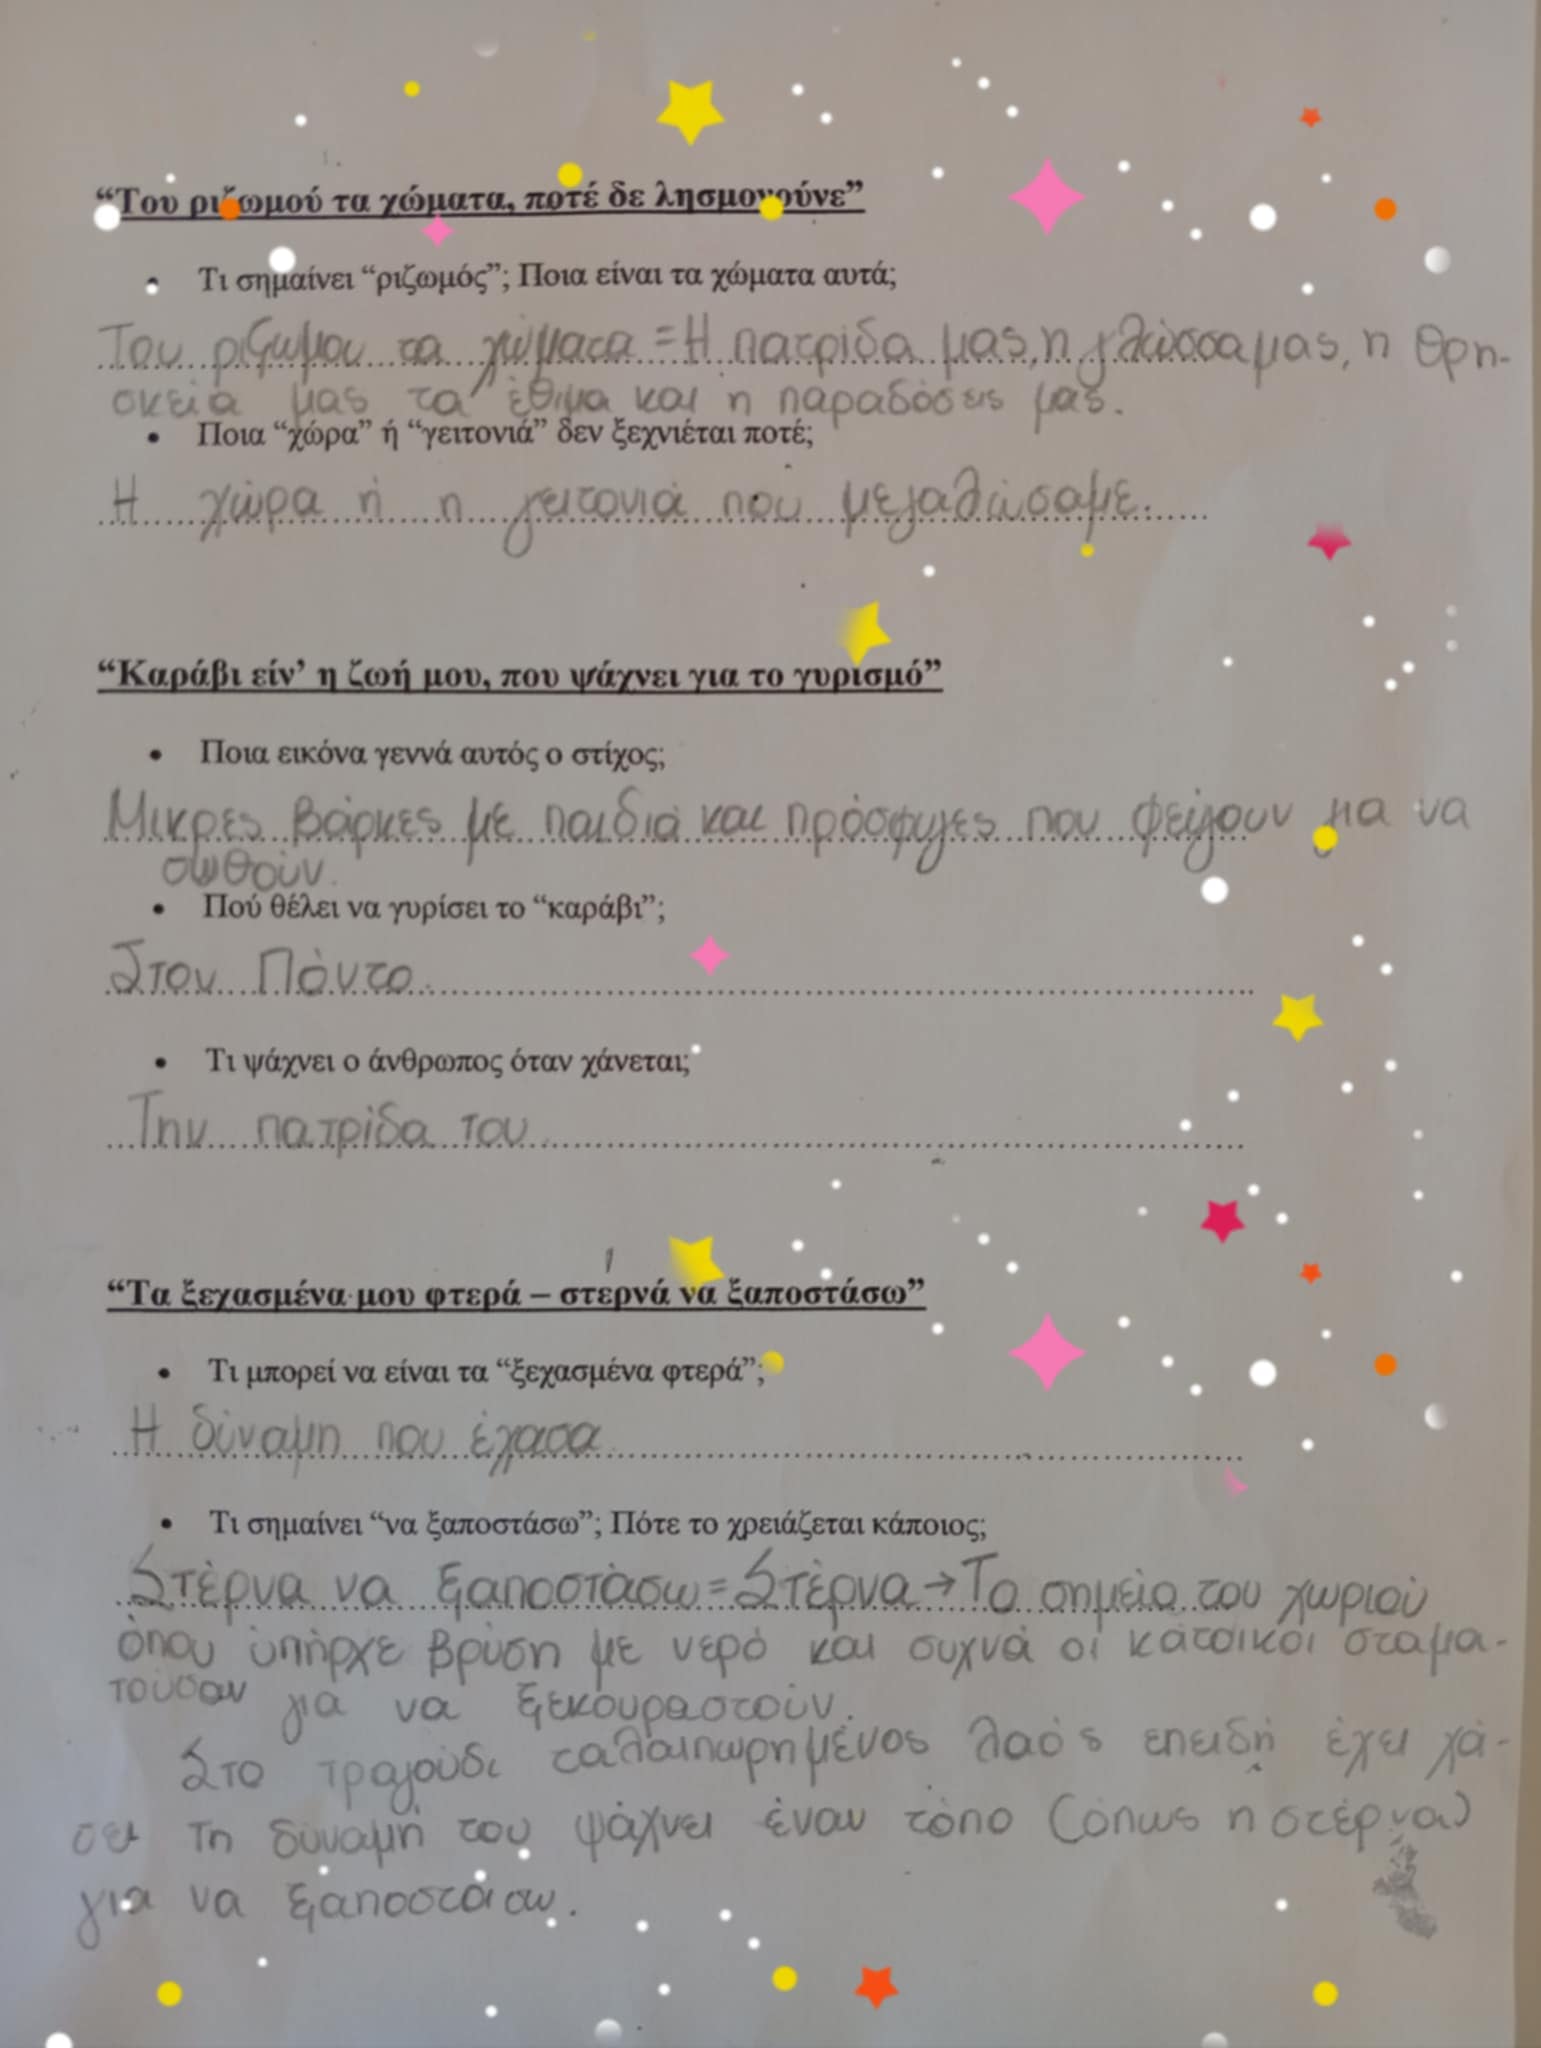 “Του ριζωμού τα χώματα, ποτέ δε λησμονούνε”
• Τι σημαίνει “ριζωμός”; Ποια είναι τα χώματα αυτά;
Του ριζωμου τα χώματα = Η πατρίδα μας, η γλώσσα μας, η θρη-
σκεία μας τα έθιμα και η παραδόσεις μας.
• Ποια “χώρα” ή “γειτονιά” δεν ξεχνιέται ποτέ;
Η χώρα ή η γειτονιά που μεγαλώσαμε.
“Καράβι είν’ η ζωή μου, που ψάχνει για το γυρισμό”
• Ποια εικόνα γεννά αυτός ο στίχος;
Μικρες βάρκες με παιδιά και πρόσφυγες που φεύγουν για να
σωθούν.
• Πού θέλει να γυρίσει το “καράβι”;
Στον Πόντο.
• Τι ψάχνει ο άνθρωπος όταν χάνεται;
Την πατρίδα του
“Τα ξεχασμένα μου φτερά – στερνά να ξαποστάσω”
• Τι μπορεί να είναι τα “ξεχασμένα φτερά”;
Η δύναμη που έχασα
• Τι σημαίνει “να ξαποστάσω”; Πότε το χρειάζεται κάποιος;
Στέρνα να ξαποστάσω = Στέρνα → Το σημείο του χωριού
όπου ύπήρχε βρύση με νερό και συχνά οι κάτοικοι σταμα-
τούσαν για να ξεκουραστούν.
Στο τραγούδι ταλαιπωρημένος λαός επειδή έχει χά-
σει τη δύναμή του ψάχνει έναν τόπο (όπως η στέρνα)
για να ξαποστάσω.